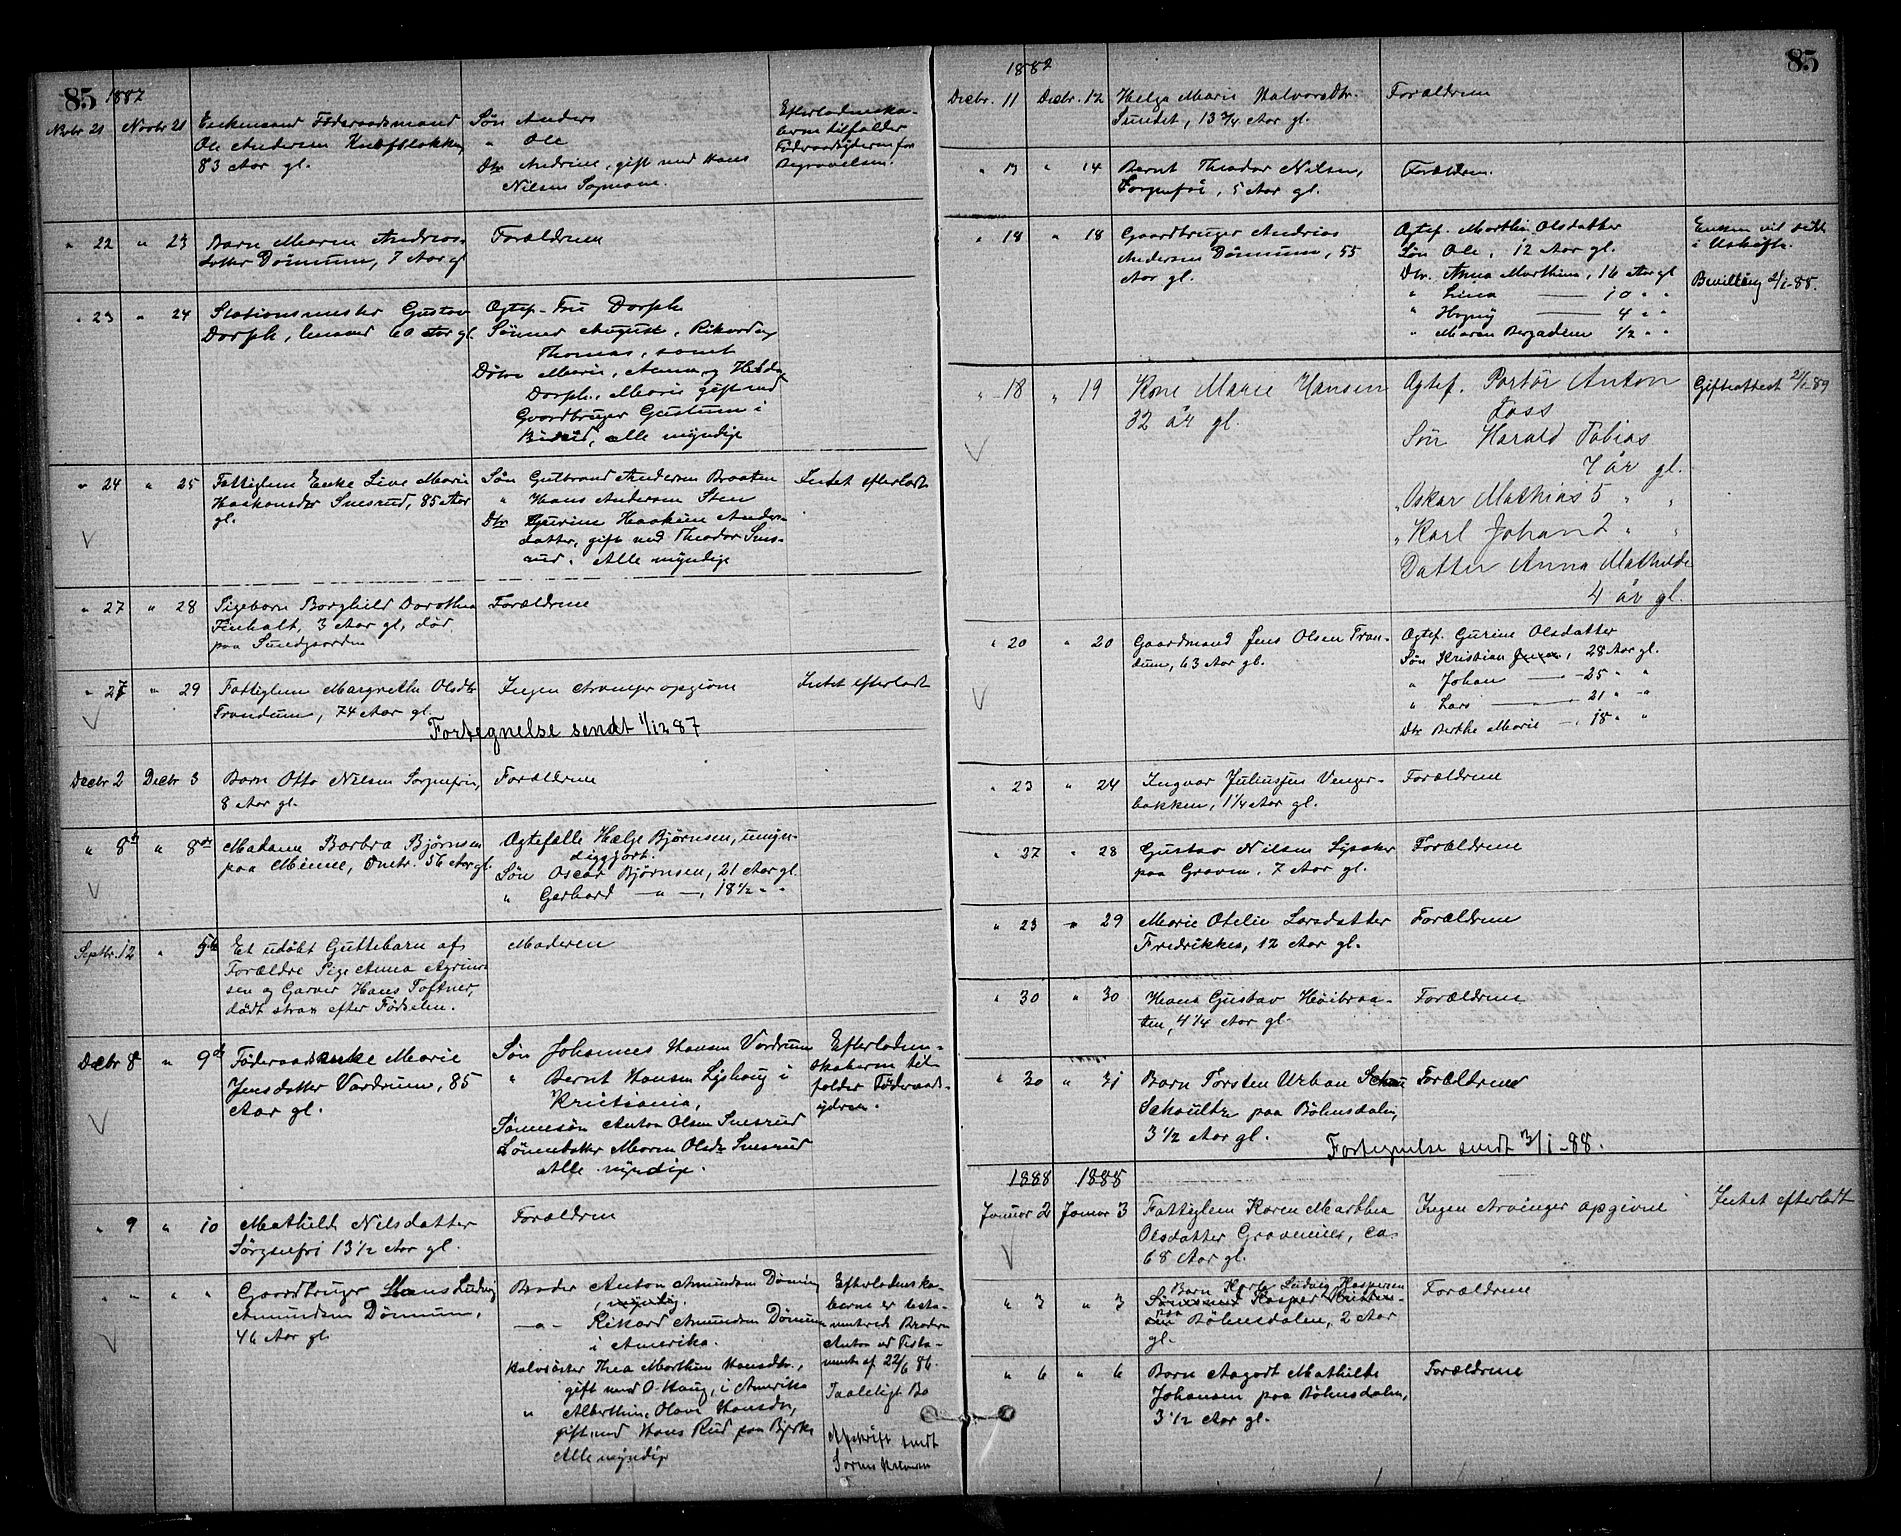 85 1887
Novbr 21 Novbr 21 Enkemand Føderaadsmand
Ole Andersen
83 Aar gl.
Søn Anders
" Ole
Dtr Andrine, gift med Hans
Nilsen
Efterladenska-
berne tilfalder
Føderaadsyderen for
Begravelsen.
" 22 " 23 Barn Maren Andreas-
datter Dömum, 7 Aar gl
Forældrene
" 23 " 24 Stationsmester Gustav
Dorph, 60 Aar gl.
Ogtef. Fru Dorph
Sønner August, Rikard og
Thomas, samt
Døtre Marie, Anna og Hilda
Dorph, Marie gift med
Gaardbruger Gustum i
alle myndige
" 24 " 25 Fattiglem Enke Live Marie
Haakonsdtr Smsrud, 85 Aar
gl.
Søn Gulbrand Andersen Braaten
" Hans Andersen Sten
Dtr Gurine Haakine Anders-
datter, gift med Theodor Sms-
rud. Alle myndige
Intet efterladt
" 27 " 28 Pigebarn Borghild Dorothea
Finholt, 3 Aar gl, død
paa Sundgaarden
Forældrene
" 27 " 29 Fattiglem Margrethe Olsdtr
Trandum, 74 Aar gl.
Ingen Arvinger opgivne
Intet efterladt
Fortegnelse sendt 1/12 87
Decbr 2 Decbr 3 Barn Otto Nilsen Sorgenfri,
8 Aar gl.
Forældrene
" 8de " 8de Madame Barbra Bjørnsen
paa Minne, 56 Aar gl
Ogtefælle Helge Bjørnsen, umyn-
diggjort.
Søn Oscar Bjørnsen, 21 Aar gl.
" Gerhard — " —, 18 1/2 " "
Septbr. 12 " 5te Et udøbt Guttebarn af
Forældre Pige Anna
sen og Garver Hans Toftner,
dødt strax efter Fødselen.
Moderen
Decbr 8 " 9de Føderaadsenke Marie
Jensdatter Vardrum, 85
Aar gl.
Søn Johannes Hansen Vardrum
" Bernt Hansen Lyshaug i
Kristiania,
Sønnesøn Anton Olsen Smsrud
Sønnedatter Maren Olsdtr Smsrud
Alle myndige.
Efterladen-
skaberne til-
falder Føderaads-
yderen.
" 9 " 10 Mathilde Nilsdatter
Sørgenfri 13 1/2 Aar gl.
Forældren
" " " " Gaardbruger Hans Ludvig
Amundsen Dömum,
46 Aar gl.
Broder Anton Amundsen Döm
, myndig.
—"— Rikard Amundsen Dömum
i Amerika.
Halvsöster Thea Marthine Hansdtr.,
gift med O. Haug, i Amerika
" Alberthine Olava Hansdtr,
gift med Hans Rud paa Bjerke
Alle myndige
Efterladenska-
berne er testa-
menterede Broderen
Anton ved Testa-
mente af 22/6 86
Taaleligt Bo
Afskrift sendt
85
1887
Decbr. 11 Decbr. 12 Helga Marie Halvorsdtr.
Sundet, 13 3/4 Aar gl.
Forældrene
" 13 " 14 Bernt Theodor Nilsen,
Sorgenfri, 5 Aar gl.
Forældren.
" 18 " 18 Gaardbruger Andrias
Andersen Dömum, 55
Aar gl.
Ogtef. Marthe Olsdatter
Søn Ole, 12 Aar gl.
Dtr. Anna Marthine, 16 Aar gl
" Lina —— 10 " "
" —— 4 " "
" Maren Bergadine 1/2 " "
Enken vil sidde
i Uskifte.
Bevilling 2/1-88.
" 18 " 19 Kone Marie Hansen
32 år gl.
Ogtef. Portör Anton
Foss
Søn Harald Tobias
7 år gl.
" Oskar Mathias 5 " "
" Karl Johan 2 " "
Datter Anna Mathilde
4 år gl.
Gifteattest 2/1 89
" 20 " 20 Gaardmand Jens Olsen Tran-
dum, 63 Aar gl.
Ogtef. Gurine Olsdatter
Søn Kristian Jensen, 28 Aar gl.
" Johan —— 25 " "
" Lars —— 21 " "
Dtr Berthe Marie —, 18 " "
" 23 " 24 Ingvar Juliussen Venger-
bakken, 1 1/4 Aar gl.
Forældrene
" 27 " 28 Gustav Nilsen
paa Graven, 7 Aar gl.
Forældrene
" 23 " 29 Marie Otelie Larsdatter
Fredrikkes, 12 Aar gl.
Forældrene
" 30 " 30 Hans Gustav Høibraa-
ten, 4 1/4 Aar gl.
Forældrene
" 30 " 31 Barn Torsten Urban
Schoultz paa Bøhnsdalen,
3 1/2 Aar gl.
Forældrene
Fortegnelse sendt 3/1-88.
1888 1888
Januar 2 Januar 3 Fattiglem Karen Marthea
Olsdatter ca
68 Aar gl.
Ingen Arvinger opgivne
Intet efterladt
" 3 " 3 Barn Karl Ludvig Kaspersen
paa Bøhnsdalen, 2 Aar
gl.
Forældrene
" 6 " 6 Barn Aagodt Mathilde
Johansen paa Bøhnsdalen,
3 1/2 Aar gl.
Forældrene